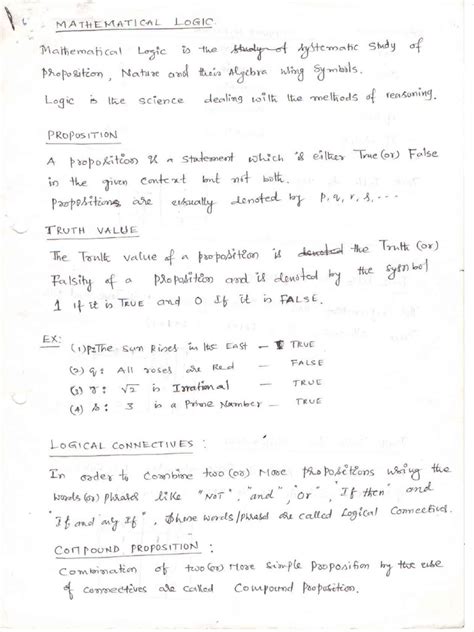 MATHEMATICAL LOGIC.
Mathematical Logic is the study of systematic study of
proposition, Nature and their Algebra using symbols.
Logic is the science dealing with the methods of reasoning.
PROPOSITION
A proposition is a statement which is either True (or) False
in the given context but not both.
Propositions are usually denoted by p, q, r, s, ---
TRUTH VALUE
The Truth value of a proposition is denoted the Truth (or)
Falsity of a proposition and is denoted by the symbol
1 if it is TRUE and 0 If it is FALSE.
EX:
(1) p: The Sun Rises in the East — TRUE
(2) q: All roses are Red — FALSE
(3) r: √2 is Irrational — TRUE
(4) s: 3 is a Prime Number — TRUE
LOGICAL CONNECTIVES :
In order to combine two (or) More propositions using the
words (or) phrases like "NOT", "and", "Or", "If then" and
"If and only If", these words/phrases are called Logical Connectives.
COMPOUND PROPOSITION :
Combination of two (or) More simple proposition by the use
of connectives are called Compound Proposition.